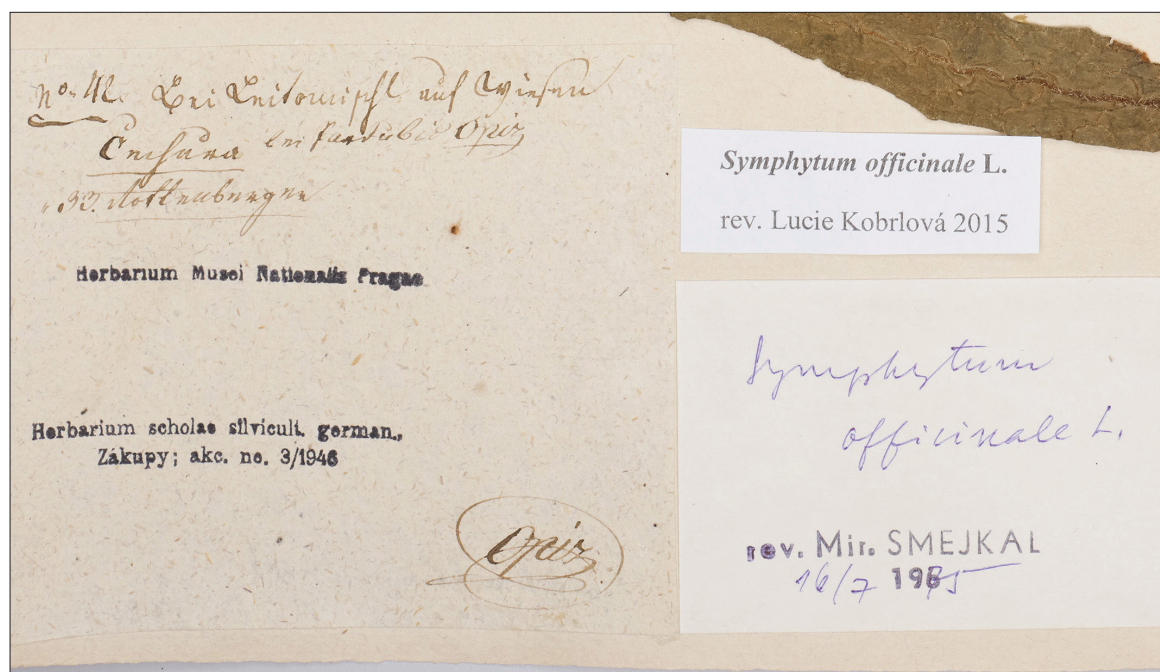 No. 42. Bei Leitomischl auf Wiesen
Cechura bei Pardubic Opiz
33. Rottenberger
Herbarium Musei Nationalis Pragae
Herbarium scholae silvicult. german.,
Zákupy; akc. no. 3/1946
Opiz
Symphytum officinale L.
rev. Lucie Kobrlová 2015
Symphytum
officinale L.
rev. Mir. SMEJKAL
16/7 1975